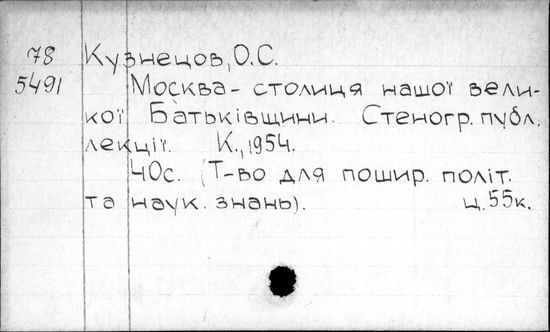 78 Кузнецов, О.С.
5491 Москва - столиця нашої вели-
кої Батьківщини. Стеногр. публ.
лекції. К., 1954.
40с. (Т-во для пошир. політ.
та наук. знань). ц. 55к.